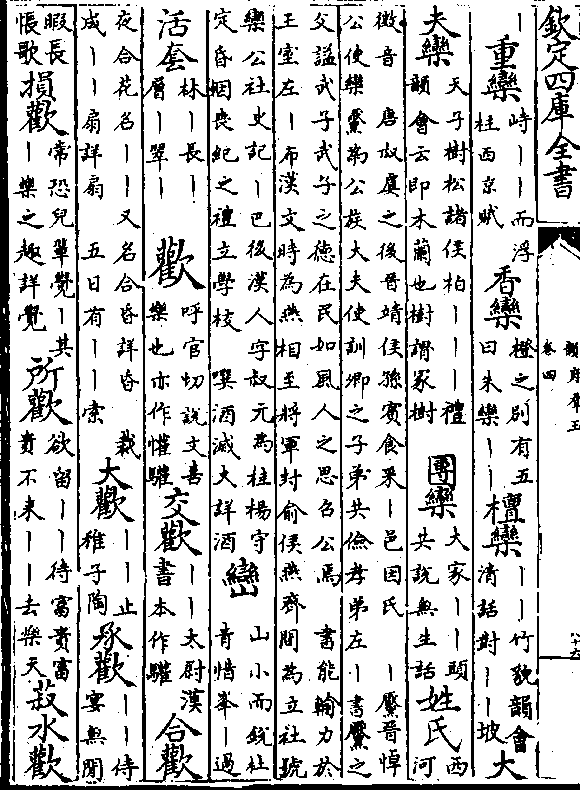 欽定四庫全書
韻府群玉
卷四
十六
丨重欒峙丨丨而浮
柱西京賦
香欒橙之别有五
曰朱欒丨丨
檀欒丨丨竹貌韻會
清話對丨丨坡
大
夫欒天子樹松諸侯柏丨丨丨禮
韻會云即木蘭也樹謂冢樹
團欒大家丨丨頭
共説無生話
姓氏西
河
徴音 唐叔虞之後晉靖侯孫賓食采丨邑因氏 丨黶晉悼
公使欒黶為公族大夫使訓卿之子弟共儉孝弟左丨書黶之
父謚武子武子之徳在民如周人之思召公焉 書能輸力於
王室左丨布漢文時為燕相至將軍封俞侯燕齊間為立社號
欒公社史記丨巴後漢人字叔元為桂楊守
定昏姻喪紀之禮立學校 噀酒滅火詳酒
巒山小而銳杜
青惜峯丨過
活套林丨長丨
層丨翠丨
歡呼官切説文喜
樂也亦作懽驩
交歡丨丨太尉漢
書本作驩
合歡
夜合花名丨丨又名合昏詳昏 裁
成丨丨扇詳扇 五日有丨丨索
大歡丨丨止
稚子陶
承歡丨丨侍
宴無閒
暇長
恨歌
損歡常恐兒輩覺丨其
丨樂之趣詳覺
所歡欲留丨丨待富貴富
貴不來丨丨去樂天
菽水歡